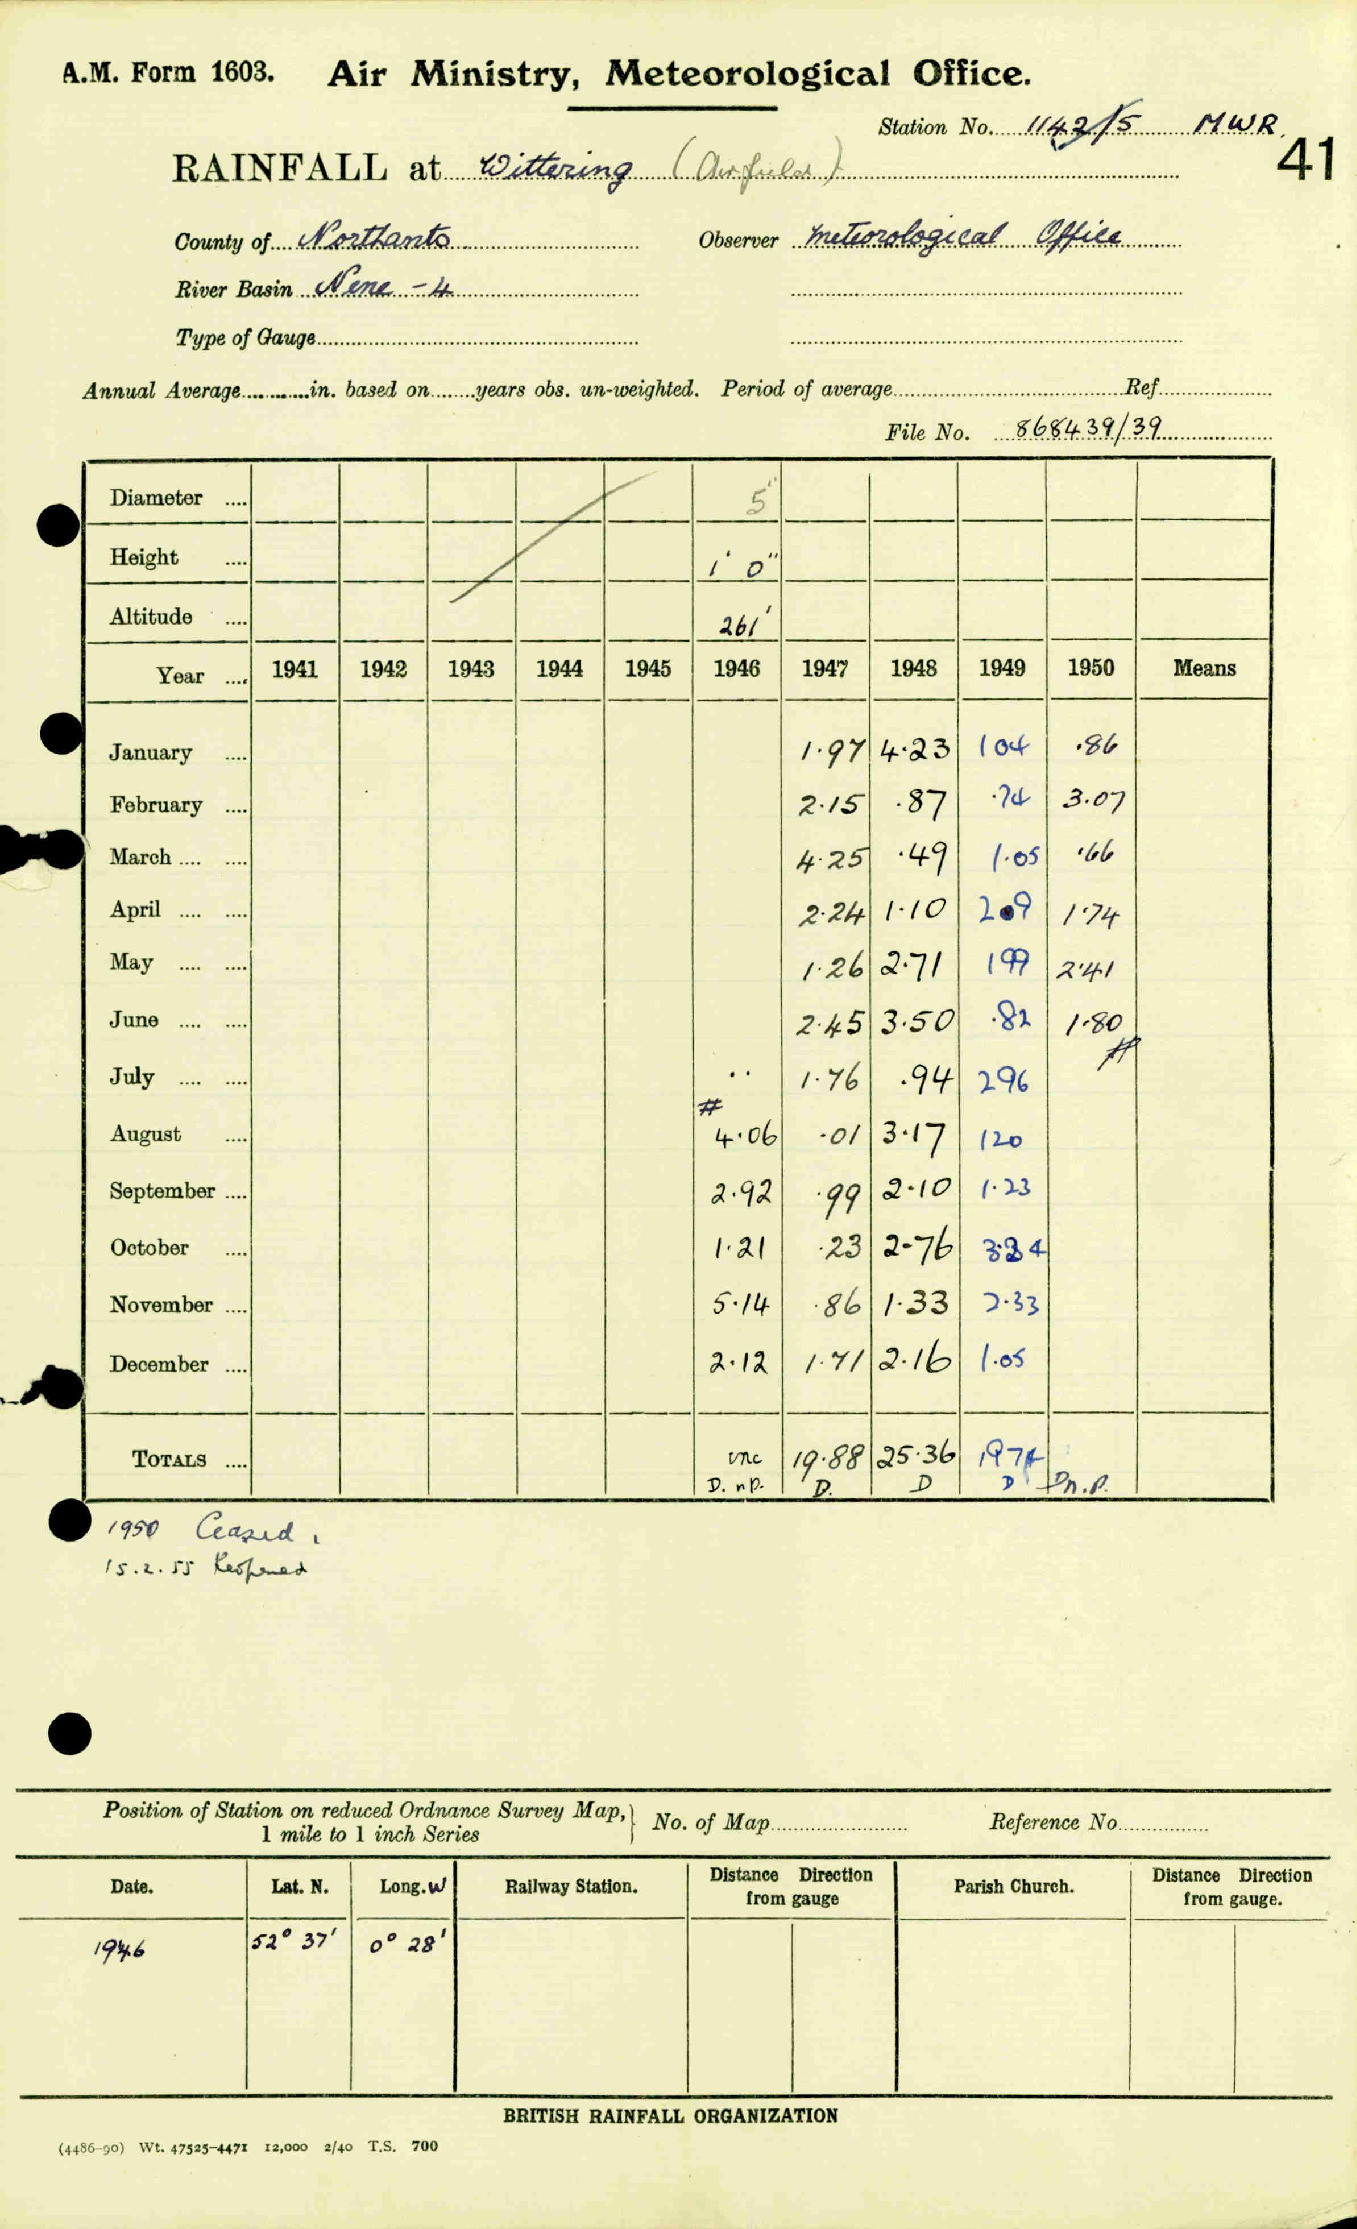 A.M. Form 1603. Air Ministry, Meteorological Office.
Station No. 1142/5 MWR
41
RAINFALL at Wittering (Airfield)
County of Northants Observer Meteorological Office
River Basin Nene - 4
Type of Gauge
Annual Average in. based on years obs. un-weighted. Period of average Ref.
File No. 868439/39
Diameter .... 5"
Height .... 1' 0"
Altitude .... 261'
Year .... 1941 1942 1943 1944 1945 1946 1947 1948 1949 1950 Means
January .... 1.97 4.23 104 .86
February .... 2.15 .87 .74 3.07
March .... .... 4.25 .49 1.05 .66
April .... .... 2.24 1.10 2.09 1.74
May .... .... 1.26 2.71 199 2.41
June .... .... 2.45 3.50 .82 1.80
#
July .... .... .. 1.76 .94 296
#
August .... 4.06 .01 3.17 120
September .... 2.92 .99 2.10 1.23
October .... 1.21 .23 2.76 3.24
November .... 5.14 .86 1.33 2.33
December .... 2.12 1.71 2.16 1.05
TOTALS .... inc 19.88 25.36 1974
D. n.p. D. D D D n.p.
1950 Ceased.
15.2.55 Reopened
Position of Station on reduced Ordnance Survey Map, No. of Map Reference No.
1 mile to 1 inch Series
Date. Lat. N. Long. W Railway Station. Distance Direction from gauge Parish Church. Distance Direction from gauge.
1946 52° 37' 0° 28'
BRITISH RAINFALL ORGANIZATION
(4486-90) Wt. 47525-4471 12,000 2/40 T.S. 700